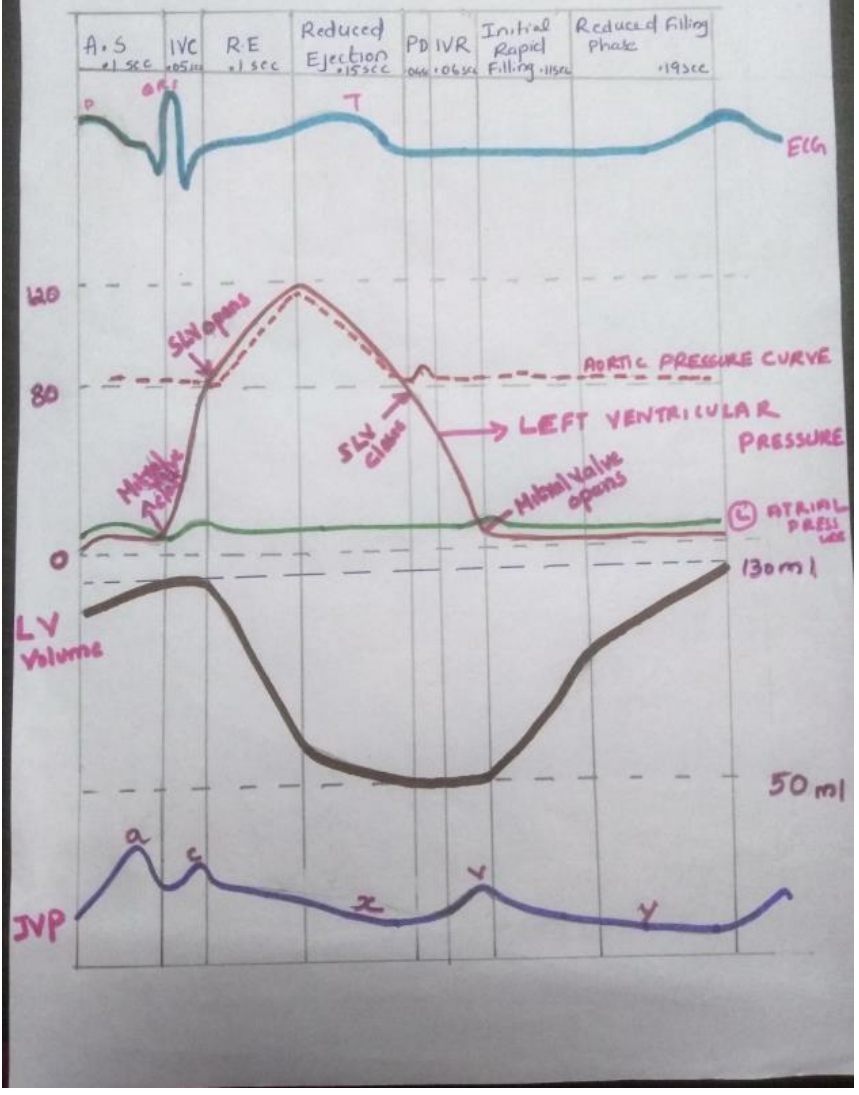 A.S
.1 sec
IVC
.05sec
R.E
.1 sec
Reduced
Ejection
.15sec
PD
.04s
IVR
.06sec
Initial
Rapid
Filling .11sec
Reduced Filling
Phase
.19sec
P
QRS
T
ECG
120
SLV opens
AORTIC PRESSURE CURVE
80
SLV
closes
LEFT VENTRICULAR
PRESSURE
Mitral
valve
Mitral valve
opens
L ATRIAL
PRESS
URE
0
130ml
LV
Volume
50ml
a
c
x
v
y
JVP